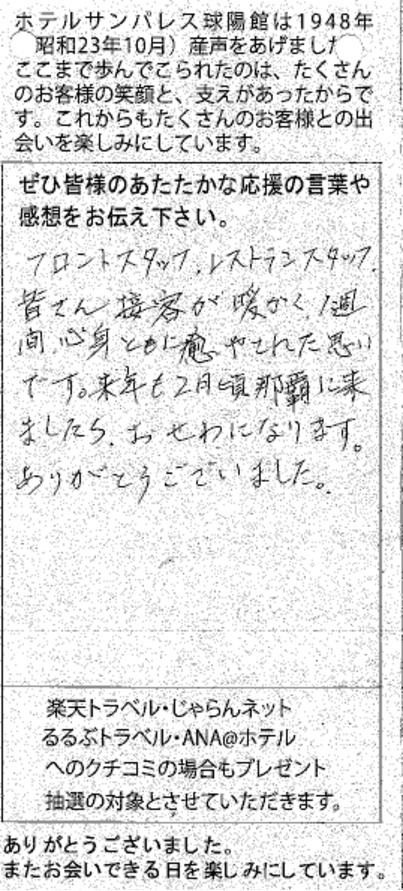 ホテルサンパレス球陽館は1948年
昭和23年10月）産声をあげました
ここまで歩んでこられたのは、たくさん
のお客様の笑顔と、支えがあったからで
す。これからもたくさんのお客様との出
会いを楽しみにしています。
ぜひ皆様のあたたかな応援の言葉や
感想をお伝え下さい。
フロントスタッフ、レストランスタッフ、
皆さん接客が暖かく、1週
間、心身ともに癒やされた思い
です。来年も2月頃那覇に来
ましたら、おせわになります。
ありがとうございました。
楽天トラベル・じゃらんネット
るるぶトラベル・ANA@ホテル
へのクチコミの場合もプレゼント
抽選の対象とさせていただきます。
ありがとうございました。
またお会いできる日を楽しみにしています。